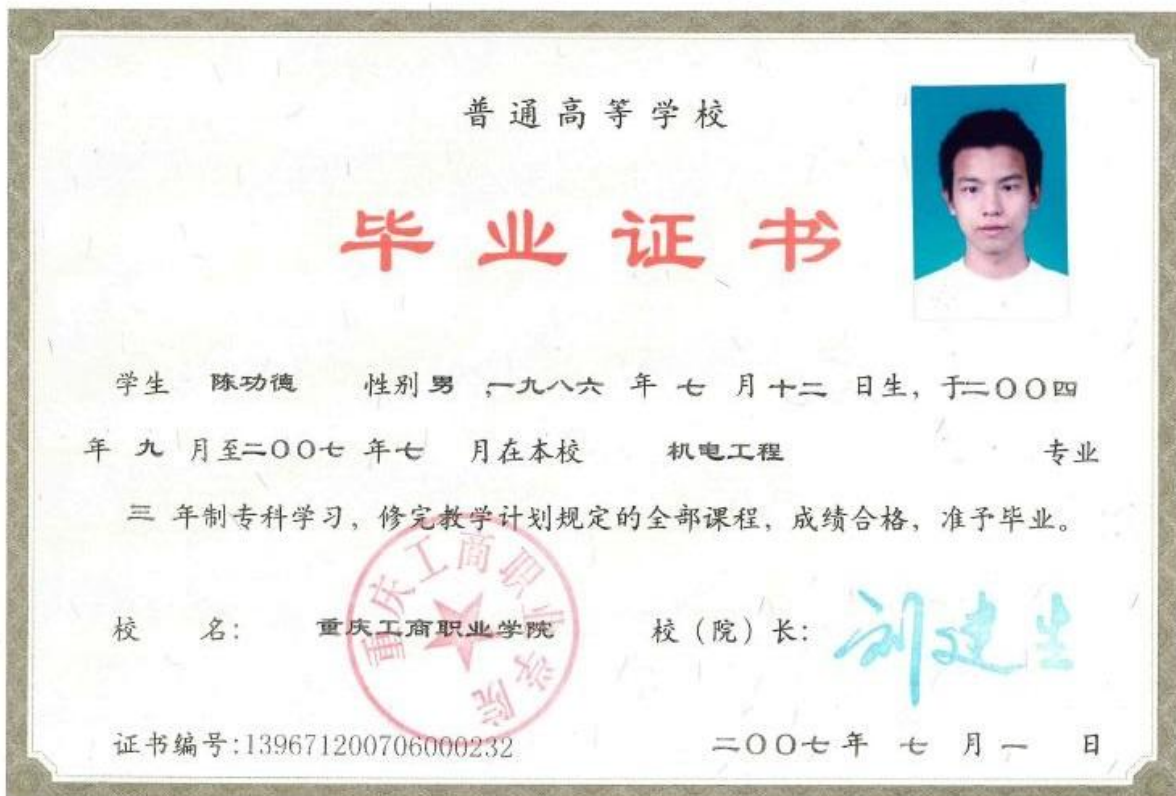 普通高等学校
毕业证书
学生 陈功德 性别 男 ,一九八六 年 七 月 十二 日生, 于二〇〇四
年 九 月至二〇〇七 年 七 月在本校 机电工程 专业
三 年制专科学习, 修完教学计划规定的全部课程, 成绩合格, 准予毕业。
校 名: 重庆工商职业学院 校 (院) 长: 刘建生
重庆工商职业学院
证书编号:139671200706000232 二〇〇七 年 七 月 一 日